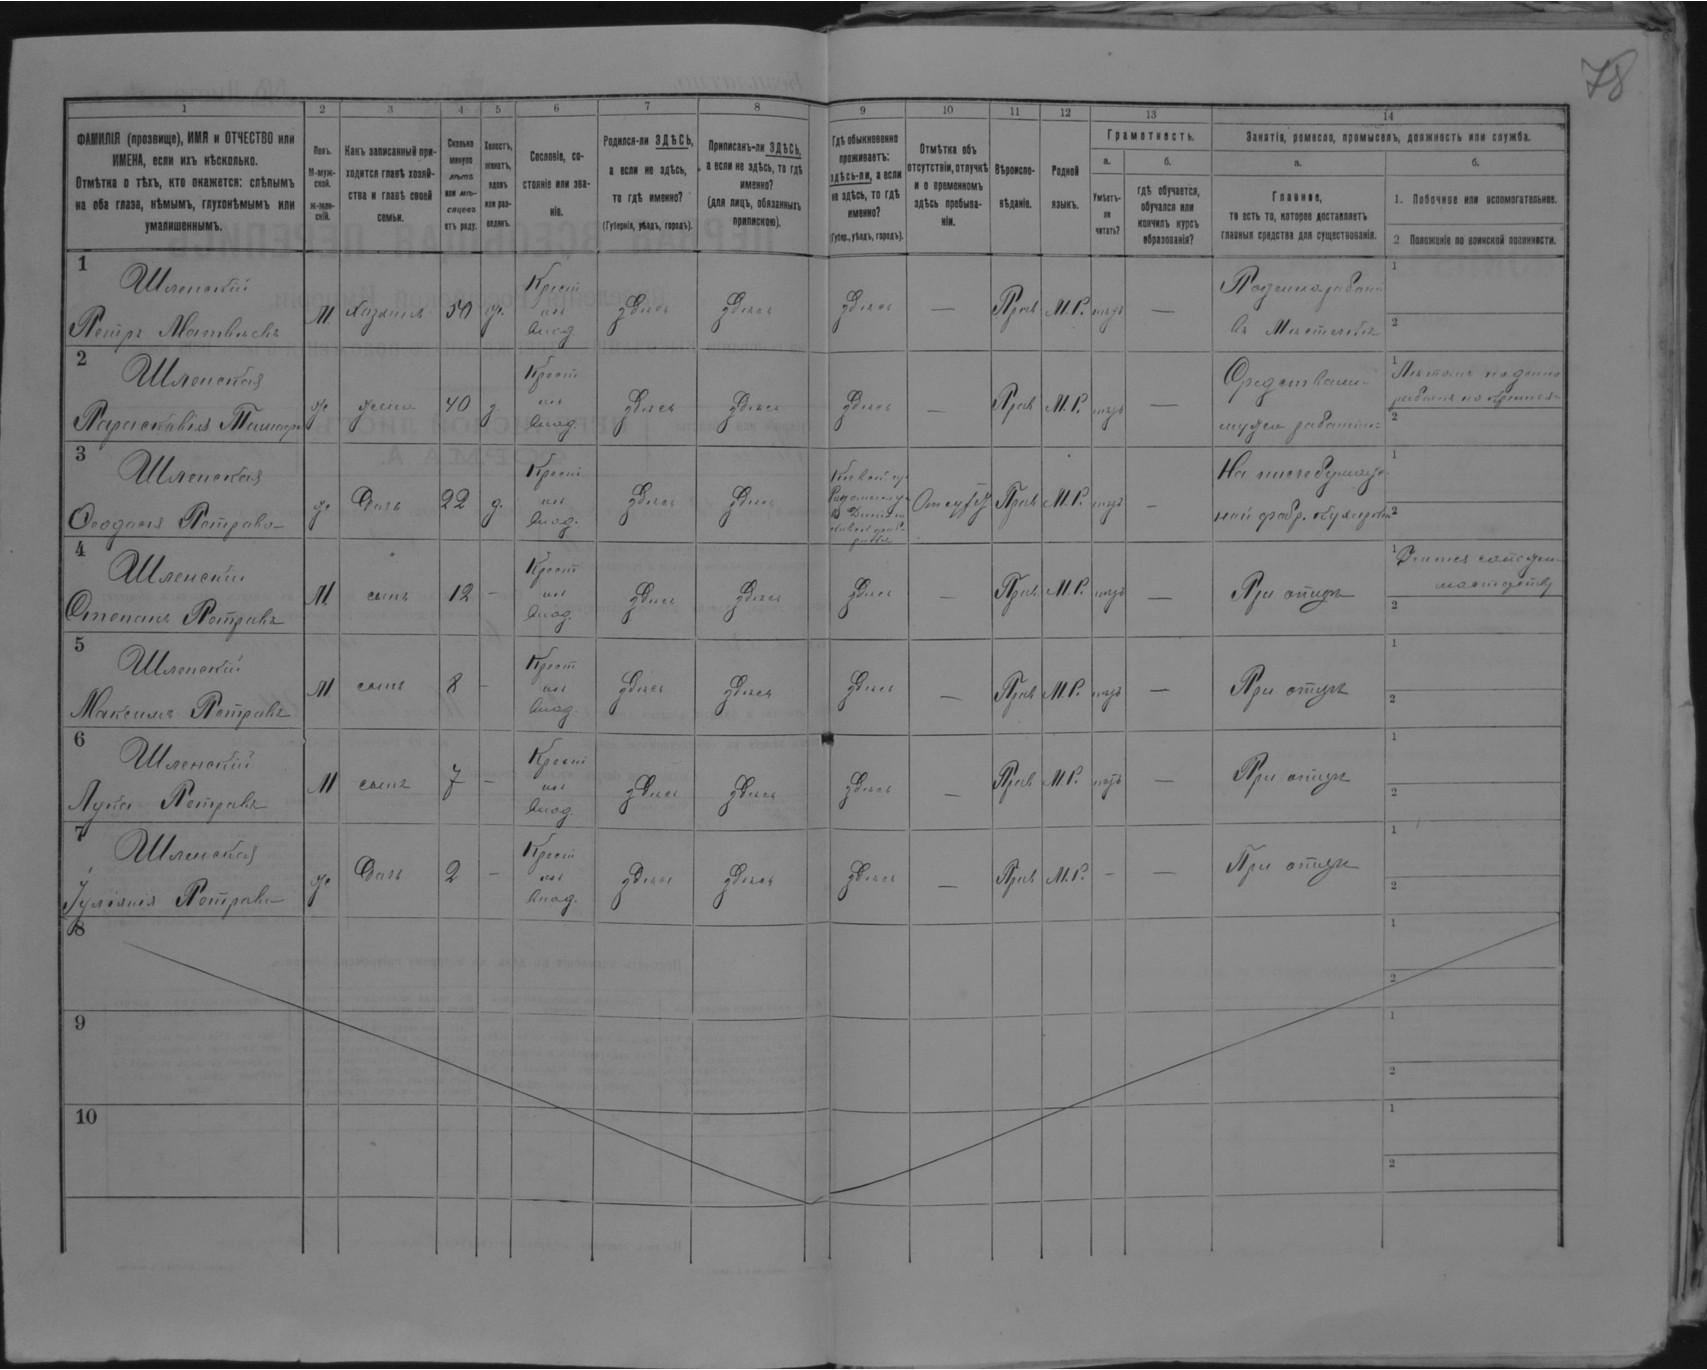 78
1 2 3 4 5 6 7 8 9 10 11 12 13 14
ФАМИЛІЯ (прозвище), ИМЯ и ОТЧЕСТВО или
ИМЕНА, если ихъ нѣсколько.
Отмѣтка о тѣхъ, кто окажется: слѣпымъ
на оба глаза, нѣмымъ, глухонѣмымъ или
умалишеннымъ.
Полъ.
М-муж-
ской.
Ж-жен-
скій.
Какъ записанный при-
ходится главѣ хозяй-
ства и главѣ своей
семьи.
Сколько
минуло
лѣтъ
или мѣ-
сяцевъ
отъ роду.
Холостъ,
женатъ,
вдовъ
или раз-
веденъ.
Сословіе, со-
стояніе или зва-
ніе.
Родился-ли ЗДѢСЬ,
а если не здѣсь,
то гдѣ именно?
(Губернія, уѣздъ, городъ).
Приписанъ-ли ЗДѢСЬ,
а если не здѣсь, то гдѣ
именно?
(для лицъ, обязанныхъ
припискою).
Гдѣ обыкновенно
проживаетъ:
здѣсь-ли, а если
не здѣсь, то гдѣ
именно?
(Губер., уѣздъ, городъ).
Отмѣтка объ
отсутствіи, отлучкѣ
и о временномъ
здѣсь пребыва-
ніи.
Вѣроиспо-
вѣданіе.
Родной
языкъ.
Грамотность.
а.
Умѣетъ-
ли
читать?
б.
гдѣ обучается,
обучался или
кончилъ курсъ
образованія?
Занятія, ремесло, промыселъ, должность или служба.
а.
Главное,
то есть то, которое доставляетъ
главныя средства для существованія.
б.
1. Побочное или вспомогательное.
2 Положеніе по воинской повинности.
1
Шленскій
Петръ Матвѣевъ М. хозяинъ 50 ж. Крест из влад. здѣсь здѣсь здѣсь — Прав М.Р. нѣтъ —
1
2
2
Шленская
Параскевія ж жена 40 з. Крест из влад. здѣсь здѣсь здѣсь — Прав М.Р. нѣтъ —
1
2
3
Шленская
Феодосія Петрова ж дочь 22 д. Крест из влад. здѣсь здѣсь Прав М.Р. нѣтъ —
1
2
4
Шленскій
Степанъ Петровъ М. сынъ 12 — Крест из влад. здѣсь здѣсь здѣсь — Прав М.Р. нѣтъ — При отцѣ
1
2
5
Шленскій
Максимъ Петровъ М сынъ 8 — Крест из влад. здѣсь здѣсь здѣсь — Прав М.Р. нѣтъ — При отцѣ
1
2
6
Шленскій
Лука Петровъ М сынъ 7 — Крест из влад. здѣсь здѣсь здѣсь — Прав М.Р. нѣтъ — При отцѣ
1
2
7
Шленская
Іуліанія Петрова ж дочь 2 — Крест из влад. здѣсь здѣсь здѣсь — Прав М.Р. — — При отцѣ
1
2
8
1
2
9
1
2
10
1
2